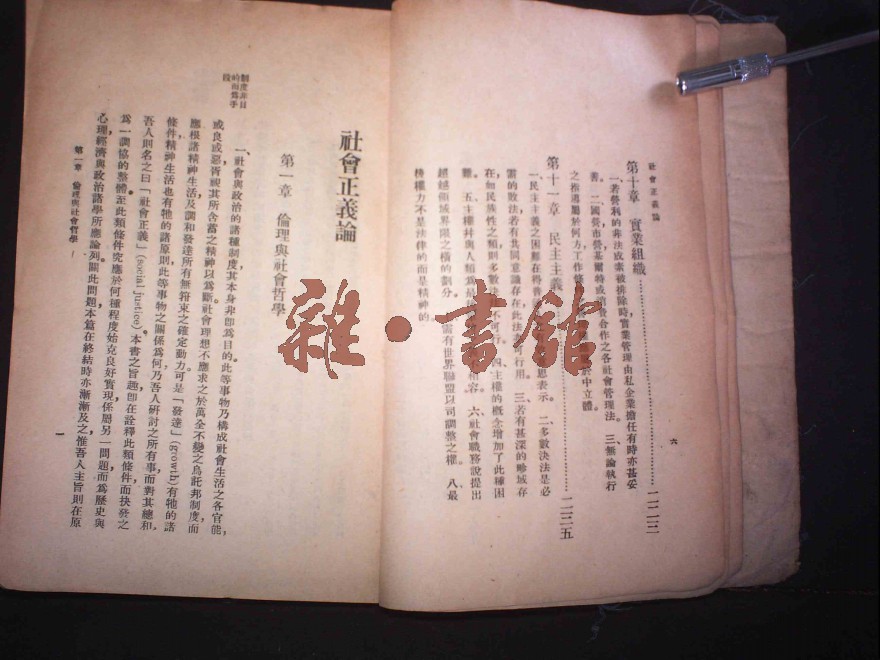 社會正義論
六
第十章 實業組織……二一三
一若營利的非法成素被排除時實業管理由私企業擔任有時亦甚妥
善。二國營市營基爾特或消費合作之各社會管理法。三無論執行
之推薦屬於何方工作條 於中立體。
第十一章 民主主義……二二五
一民主主義之困難在得普 思表示。二多數決法是必
需的數法若有共同意識存在此法 可行用。三若有甚深的畛域存
在如民族性之類則多數法 不可行。四主權的概念增加了此種困
難。五主權幷與人類爲最 相容。六社會職務說提出
越越領域界限之橫的劃分。 需有世界聯盟以司調整之權。八最
後權力不是法律的而是精神的
社會正義論
第一章 倫理與社會哲學
制度非目
的而爲手
段
一、社會與政治的諸種制度其本身非卽爲目的。此等事物乃構成社會生活之各官能,
或良或惡胥視其所含蓄之精神以爲斷社會理想不應求之於萬全不變之烏託邦制度而
應根諸精神生活及調和發達所有無箝束之確定動力可是「發達」(growth)有牠的諸
條件精神生活也有牠的諸原則此等事物之關係爲何乃吾人研討之所有事而對其總和
吾人則名之曰「社會正義」(social justice)。本書之旨趣卽在詮釋此類條件而抉發之
爲一調協的整體至此類條件究應於何種程度始克良好實現係屬另一問題而爲歷史與
心理經濟與政治諸學所應論列關此問題本篇在終結時亦漸漸及之惟吾人主旨則在原
第一章 倫理與社會哲學
一
雜·書館